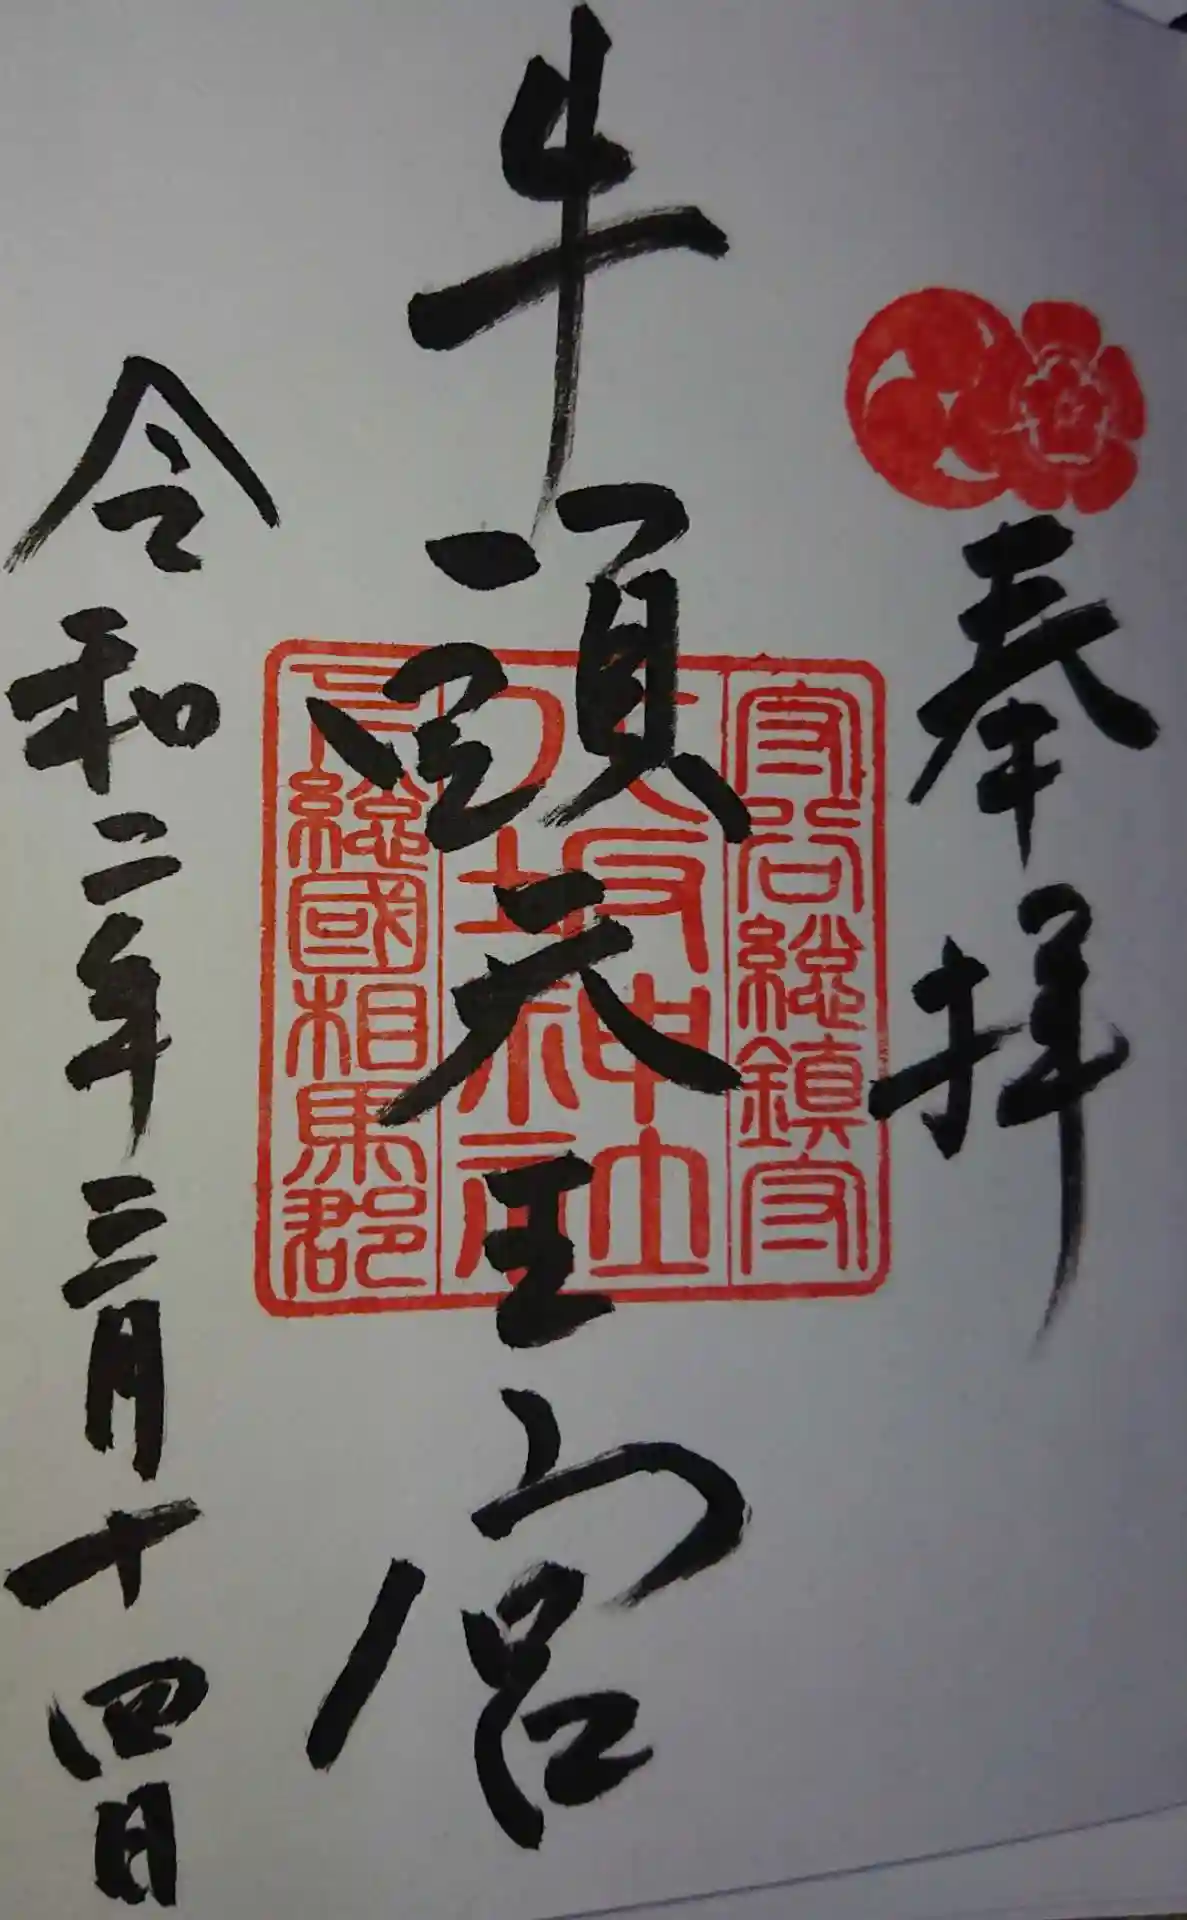 奉拝
牛頭天王宮
令和二年三月十四日
守谷総鎮守
八坂神社
下総國相馬郡